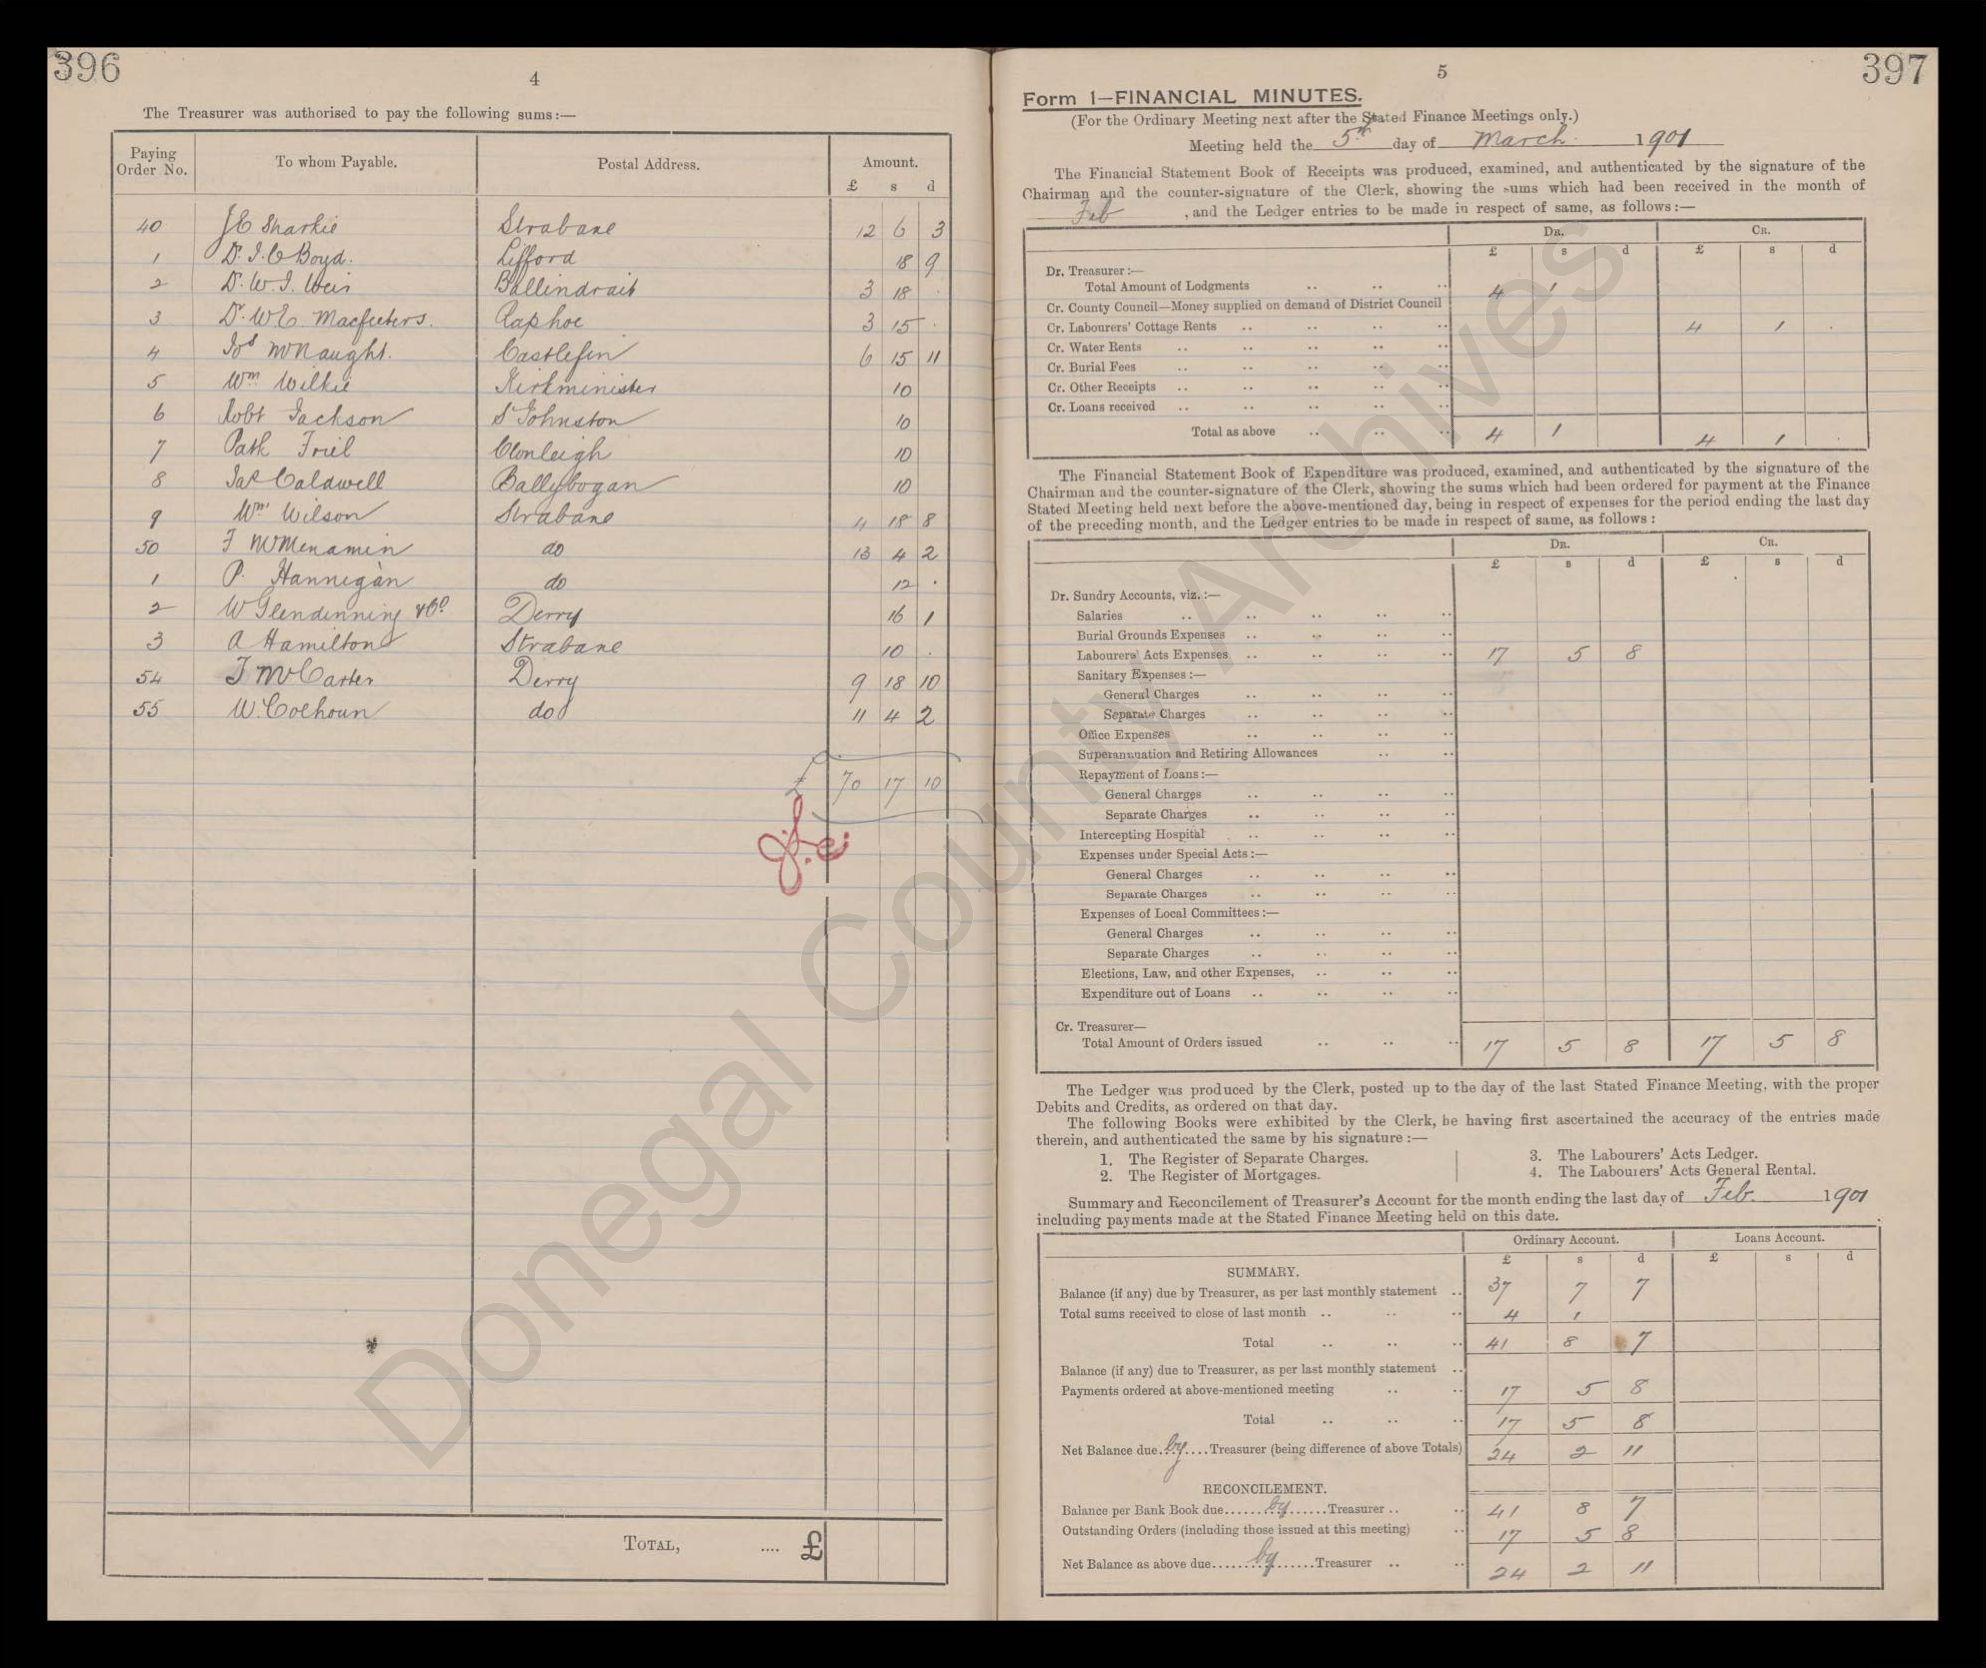 396
4
The Treasurer was authorised to pay the following sums:—
Paying Order No. To whom Payable. Postal Address. Amount.
£ s d
40 J C Sharkie Strabane 12 6 3
1 Dr. J. C Boyd. Lifford 18 9
2 Dr. W. J. Weir Ballindrait 3 18 .
3 Dr. W E. Macfeeters. Raphoe 3 15 .
4 Jos McNaught. Castlefin 6 15 11
5 Wm Wilkie Kirkminister 10
6 Robt Jackson St Johnston 10
7 Patk Friel Clonleigh 10
8 Jas Caldwell Ballybogan 10
9 Wm Wilson Strabane 4 18 8
50 F McMenamin do 13 4 2
1 P. Hannigan do 12 .
2 W Glendinning & Co Derry 16 1
3 A Hamilton Strabane 10 .
54 J McCarter Derry 9 18 10
55 W. Colhoun do 11 4 2
£ 70 17 10
Total, .... £
397
5
Form 1—FINANCIAL MINUTES.
(For the Ordinary Meeting next after the Stated Finance Meetings only.)
Meeting held the 5th day of March 1901
The Financial Statement Book of Receipts was produced, examined, and authenticated by the signature of the
Chairman and the counter-signature of the Clerk, showing the sums which had been received in the month of
Feb , and the Ledger entries to be made in respect of same, as follows:—
Dr. Cr.
£ s d £ s d
Dr. Treasurer:—
Total Amount of Lodgments .. .. .. 4 1
Cr. County Council—Money supplied on demand of District Council
Cr. Labourers' Cottage Rents .. .. .. .. 4 1 .
Cr. Water Rents .. .. .. ..
Cr. Burial Fees .. .. .. ..
Cr. Other Receipts .. .. .. ..
Cr. Loans received .. .. .. ..
Total as above .. .. .. 4 1 4 1 .
The Financial Statement Book of Expenditure was produced, examined, and authenticated by the signature of the
Chairman and the counter-signature of the Clerk, showing the sums which had been ordered for payment at the Finance
Stated Meeting held next before the above-mentioned day, being in respect of expenses for the period ending the last day
of the preceding month, and the Ledger entries to be made in respect of same, as follows:
Dr. Cr.
£ s d £ s d
Dr. Sundry Accounts, viz.:—
Salaries .. .. .. ..
Burial Grounds Expenses .. .. .. ..
Labourers' Acts Expenses .. .. .. .. 17 5 8
Sanitary Expenses:—
General Charges .. .. .. ..
Separate Charges .. .. .. ..
Office Expenses .. .. .. ..
Superannuation and Retiring Allowances .. ..
Repayment of Loans:—
General Charges .. .. .. ..
Separate Charges .. .. .. ..
Intercepting Hospital .. .. .. ..
Expenses under Special Acts:—
General Charges .. .. .. ..
Separate Charges .. .. .. ..
Expenses of Local Committees:—
General Charges .. .. .. ..
Separate Charges .. .. .. ..
Elections, Law, and other Expenses, .. .. ..
Expenditure out of Loans .. .. .. ..
Cr. Treasurer—
Total Amount of Orders issued .. .. .. 17 5 8 17 5 8
The Ledger was produced by the Clerk, posted up to the day of the last Stated Finance Meeting, with the proper
Debits and Credits, as ordered on that day.
The following Books were exhibited by the Clerk, he having first ascertained the accuracy of the entries made
therein, and authenticated the same by his signature:—
1. The Register of Separate Charges. 3. The Labourers' Acts Ledger.
2. The Register of Mortgages. 4. The Labourers' Acts General Rental.
Summary and Reconcilement of Treasurer's Account for the month ending the last day of Feb. 1901
including payments made at the Stated Finance Meeting held on this date.
Ordinary Account. Loans Account.
£ s d £ s d
SUMMARY.
Balance (if any) due by Treasurer, as per last monthly statement .. 37 7 7
Total sums received to close of last month .. .. .. 4 1
Total .. .. .. 41 8 7
Balance (if any) due to Treasurer, as per last monthly statement ..
Payments ordered at above-mentioned meeting .. .. 17 5 8
Total .. .. .. 17 5 8
Net Balance due by Treasurer (being difference of above Totals) 24 2 11
RECONCILEMENT.
Balance per Bank Book due by Treasurer .. .. 41 8 7
Outstanding Orders (including those issued at this meeting) .. 17 5 8
Net Balance as above due by Treasurer .. .. 24 2 11
Donegal County Archives